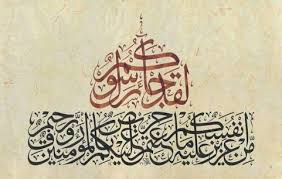 لقد جاءكم رسول
من أنفسكم عزيز عليه ما عنتم حريص عليكم بالمؤمنين رؤف رحيم